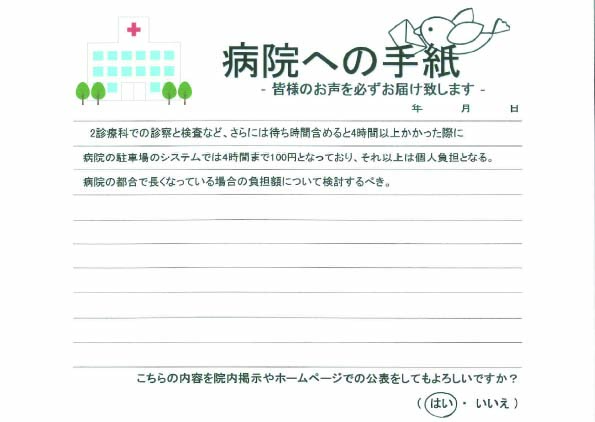 病院への手紙
- 皆様のお声を必ずお届け致します -
年 月 日
2診療科での診察と検査など、さらには待ち時間含めると4時間以上かかった際に
病院の駐車場のシステムでは4時間まで100円となっており、それ以上は個人負担となる。
病院の都合で長くなっている場合の負担額について検討するべき。
こちらの内容を院内掲示やホームページでの公表をしてもよろしいですか？
（ はい ・ いいえ ）